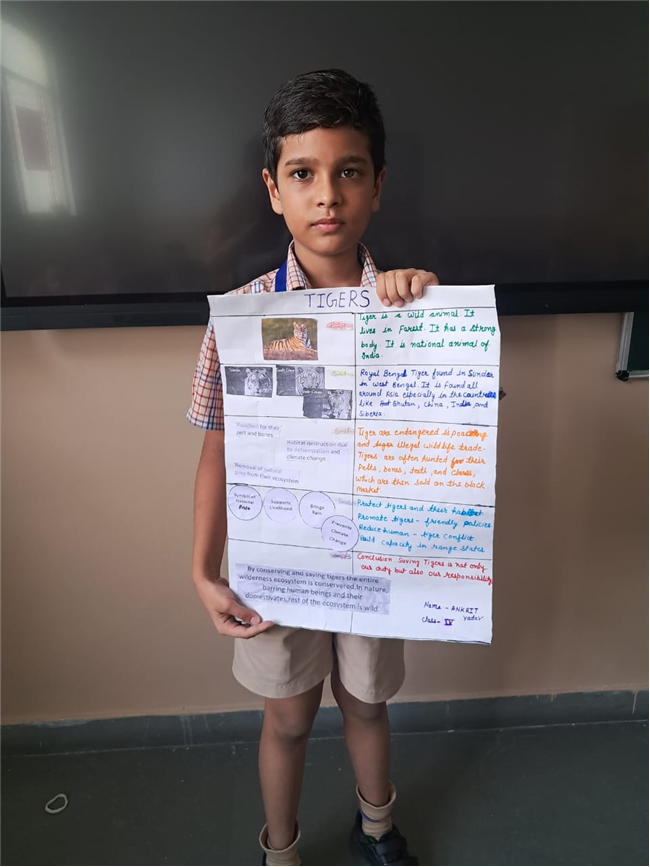 TIGERS
Tiger is a wild animal. It
lives in Forest. It has a strong
body. It is national animal of
India.
Royal Bengal Tiger found in Sunder
in West Bengal. It is found all
around Asia especially in the countries
like Bhutan, China, India and
Siberia.
Poached for their
pelt and bones
Habitat destruction due
to deforestation and
climate change
Removal of natural
prey from their ecosystem
Tiger are endangered is poaching
and illegal wildlife trade.
Tigers are often hunted for their
Pelts, bones, teeth, and claws,
which are then sold on the black
market.
Symbol of
National
Pride
Supports
Livelihood
Brings
Rain
Prevents
Climate
Change
Protect tigers and their habitat
Promote tigers - friendly policies
Reduce human - tiger conflict
Build capacity in range states
Conclusion Saving Tigers is not only
our duty but also our responsibility
By conserving and saving tigers the entire
wilderness ecosystem is conserved.In nature,
barring human beings and their
domestivates,rest of the ecosystem is wild.
Name - ANKRIT
Yadav
Class- IV